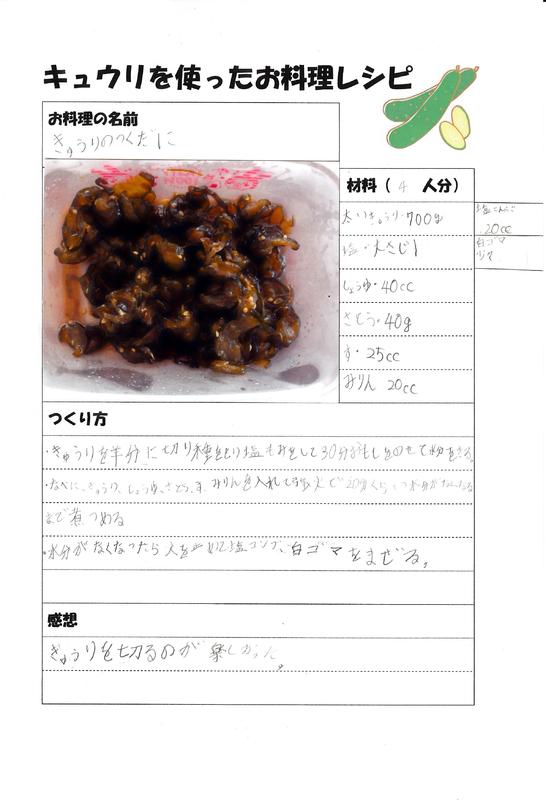 キュウリを使ったお料理レシピ
お料理の名前
きゅうりのつくだに
材料（ 4 人分）
太いきゅうり・700g
塩・大さじ1
しょうゆ・40cc
さとう・40g
す・25cc
みりん 20cc
塩こんぶ
20cc
白ゴマ
少々
つくり方
・きゅうりを半分に切り種をとり塩もみをして30分おもしをのせて水分をきる。
・なべに、きゅうり、しょうゆ、さとう、す、みりんを入れて弱火で20分くらい水分がなくなる
まで煮つめる
・水分がなくなったら火を止めて塩コンブ、白ゴマをまぜる。
感想
きゅうりを切るのが楽しかった。